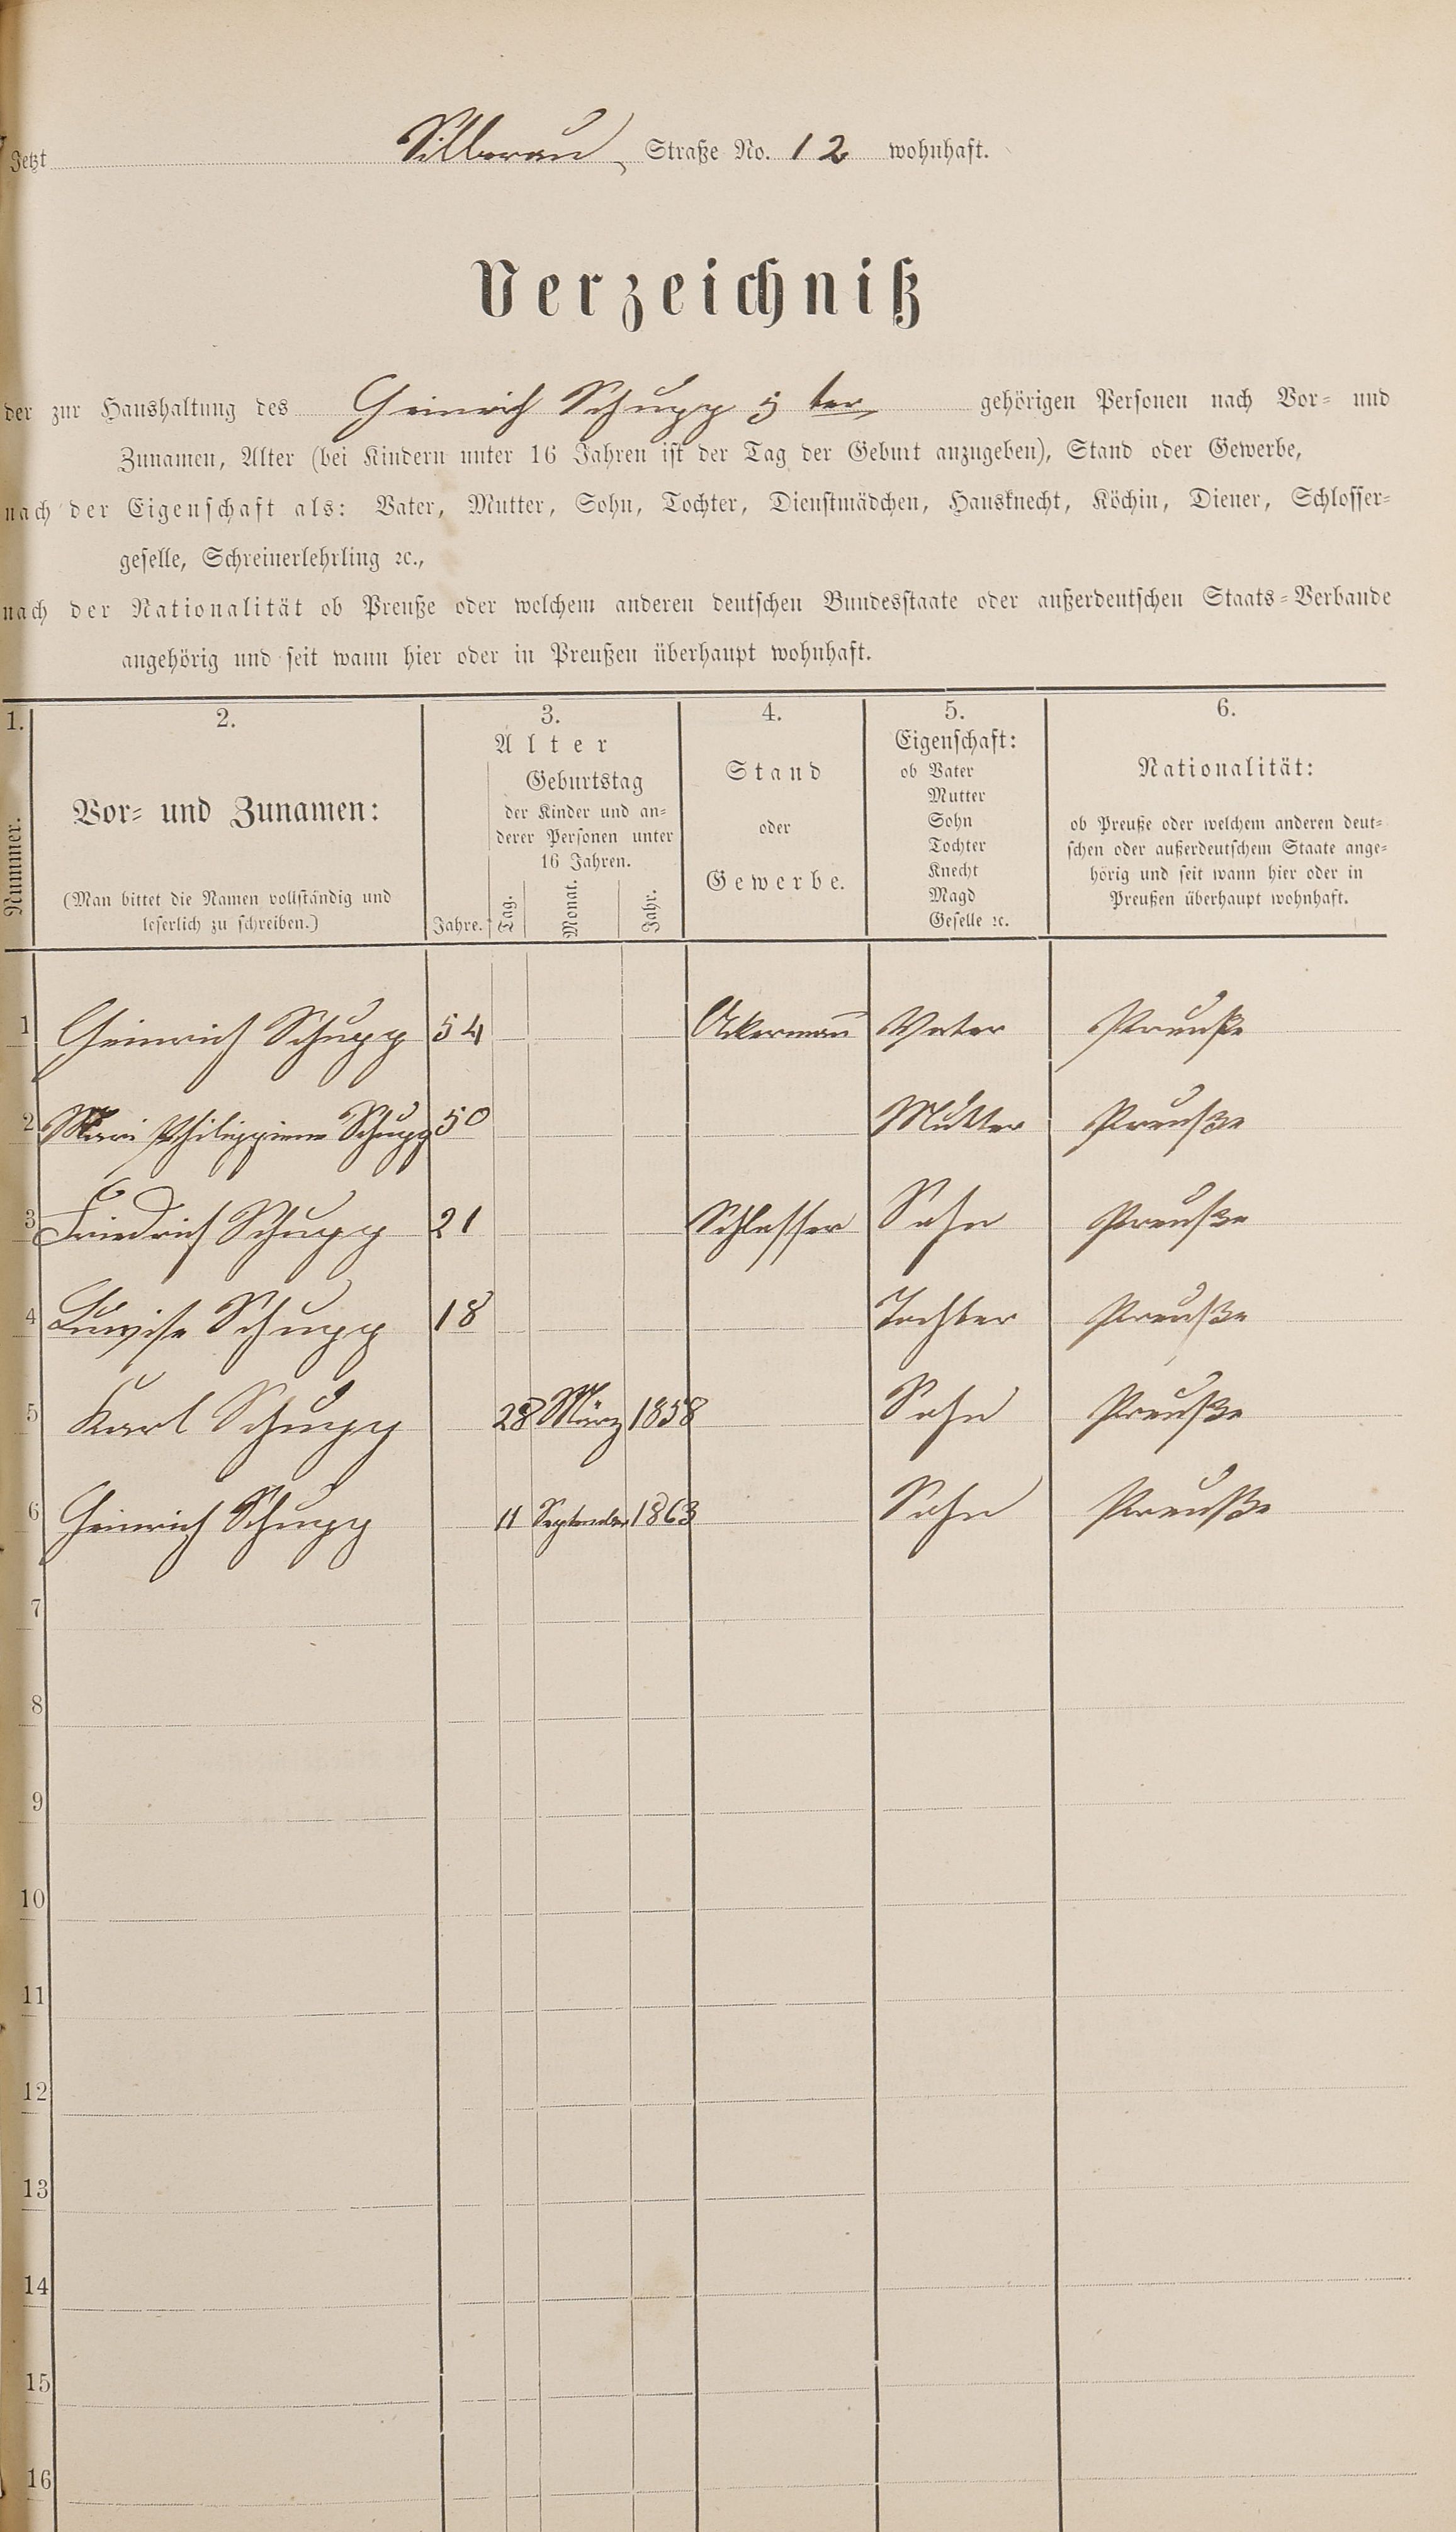 Jetzt Silberau Straße No. 12 wohnhaft.
Verzeichniß
der zur Haushaltung des Heinrich Schupp 5 ter gehörigen Personen nach Vor- und
Zunamen, Alter (bei Kindern unter 16 Jahren ist der Tag der Geburt anzugeben), Stand oder Gewerbe,
nach der Eigenschaft als: Vater, Mutter, Sohn, Tochter, Dienstmädchen, Hausknecht, Köchin, Diener, Schlosser-
geselle, Schreinerlehrling ꝛc.,
nach der Nationalität ob Preuße oder welchem anderen deutschen Bundesstaate oder außerdeutschen Staats-Verbande
angehörig und seit wann hier oder in Preußen überhaupt wohnhaft.
1. 2. 3. 4. 5. 6.
Nummer.
Vor- und Zunamen:
(Man bittet die Namen vollständig und
leserlich zu schreiben.)
Alter
Jahre.
Geburtstag
der Kinder und an-
derer Personen unter
16 Jahren.
Tag. Monat. Jahr.
Stand
oder
Gewerbe.
Eigenschaft:
ob Vater
Mutter
Sohn
Tochter
Knecht
Magd
Geselle ꝛc.
Nationalität:
ob Preuße oder welchem anderen deut-
schen oder außerdeutschem Staate ange-
hörig und seit wann hier oder in
Preußen überhaupt wohnhaft.
1 Heinrich Schupp 54 Ackermañ Vater Preuße
2 Mari Philippine Schupp 50 Mutter Preuße
3 Friedrich Schupp 21 Schlosser Sohn Preuße
4 Luise Schupp 18 Tochter Preuße
5 Karl Schupp 28 März 1858 Sohn Preuße
6 Heinrich Schupp 11 September 1863 Sohn Preuße
7
8
9
10
11
12
13
14
15
16